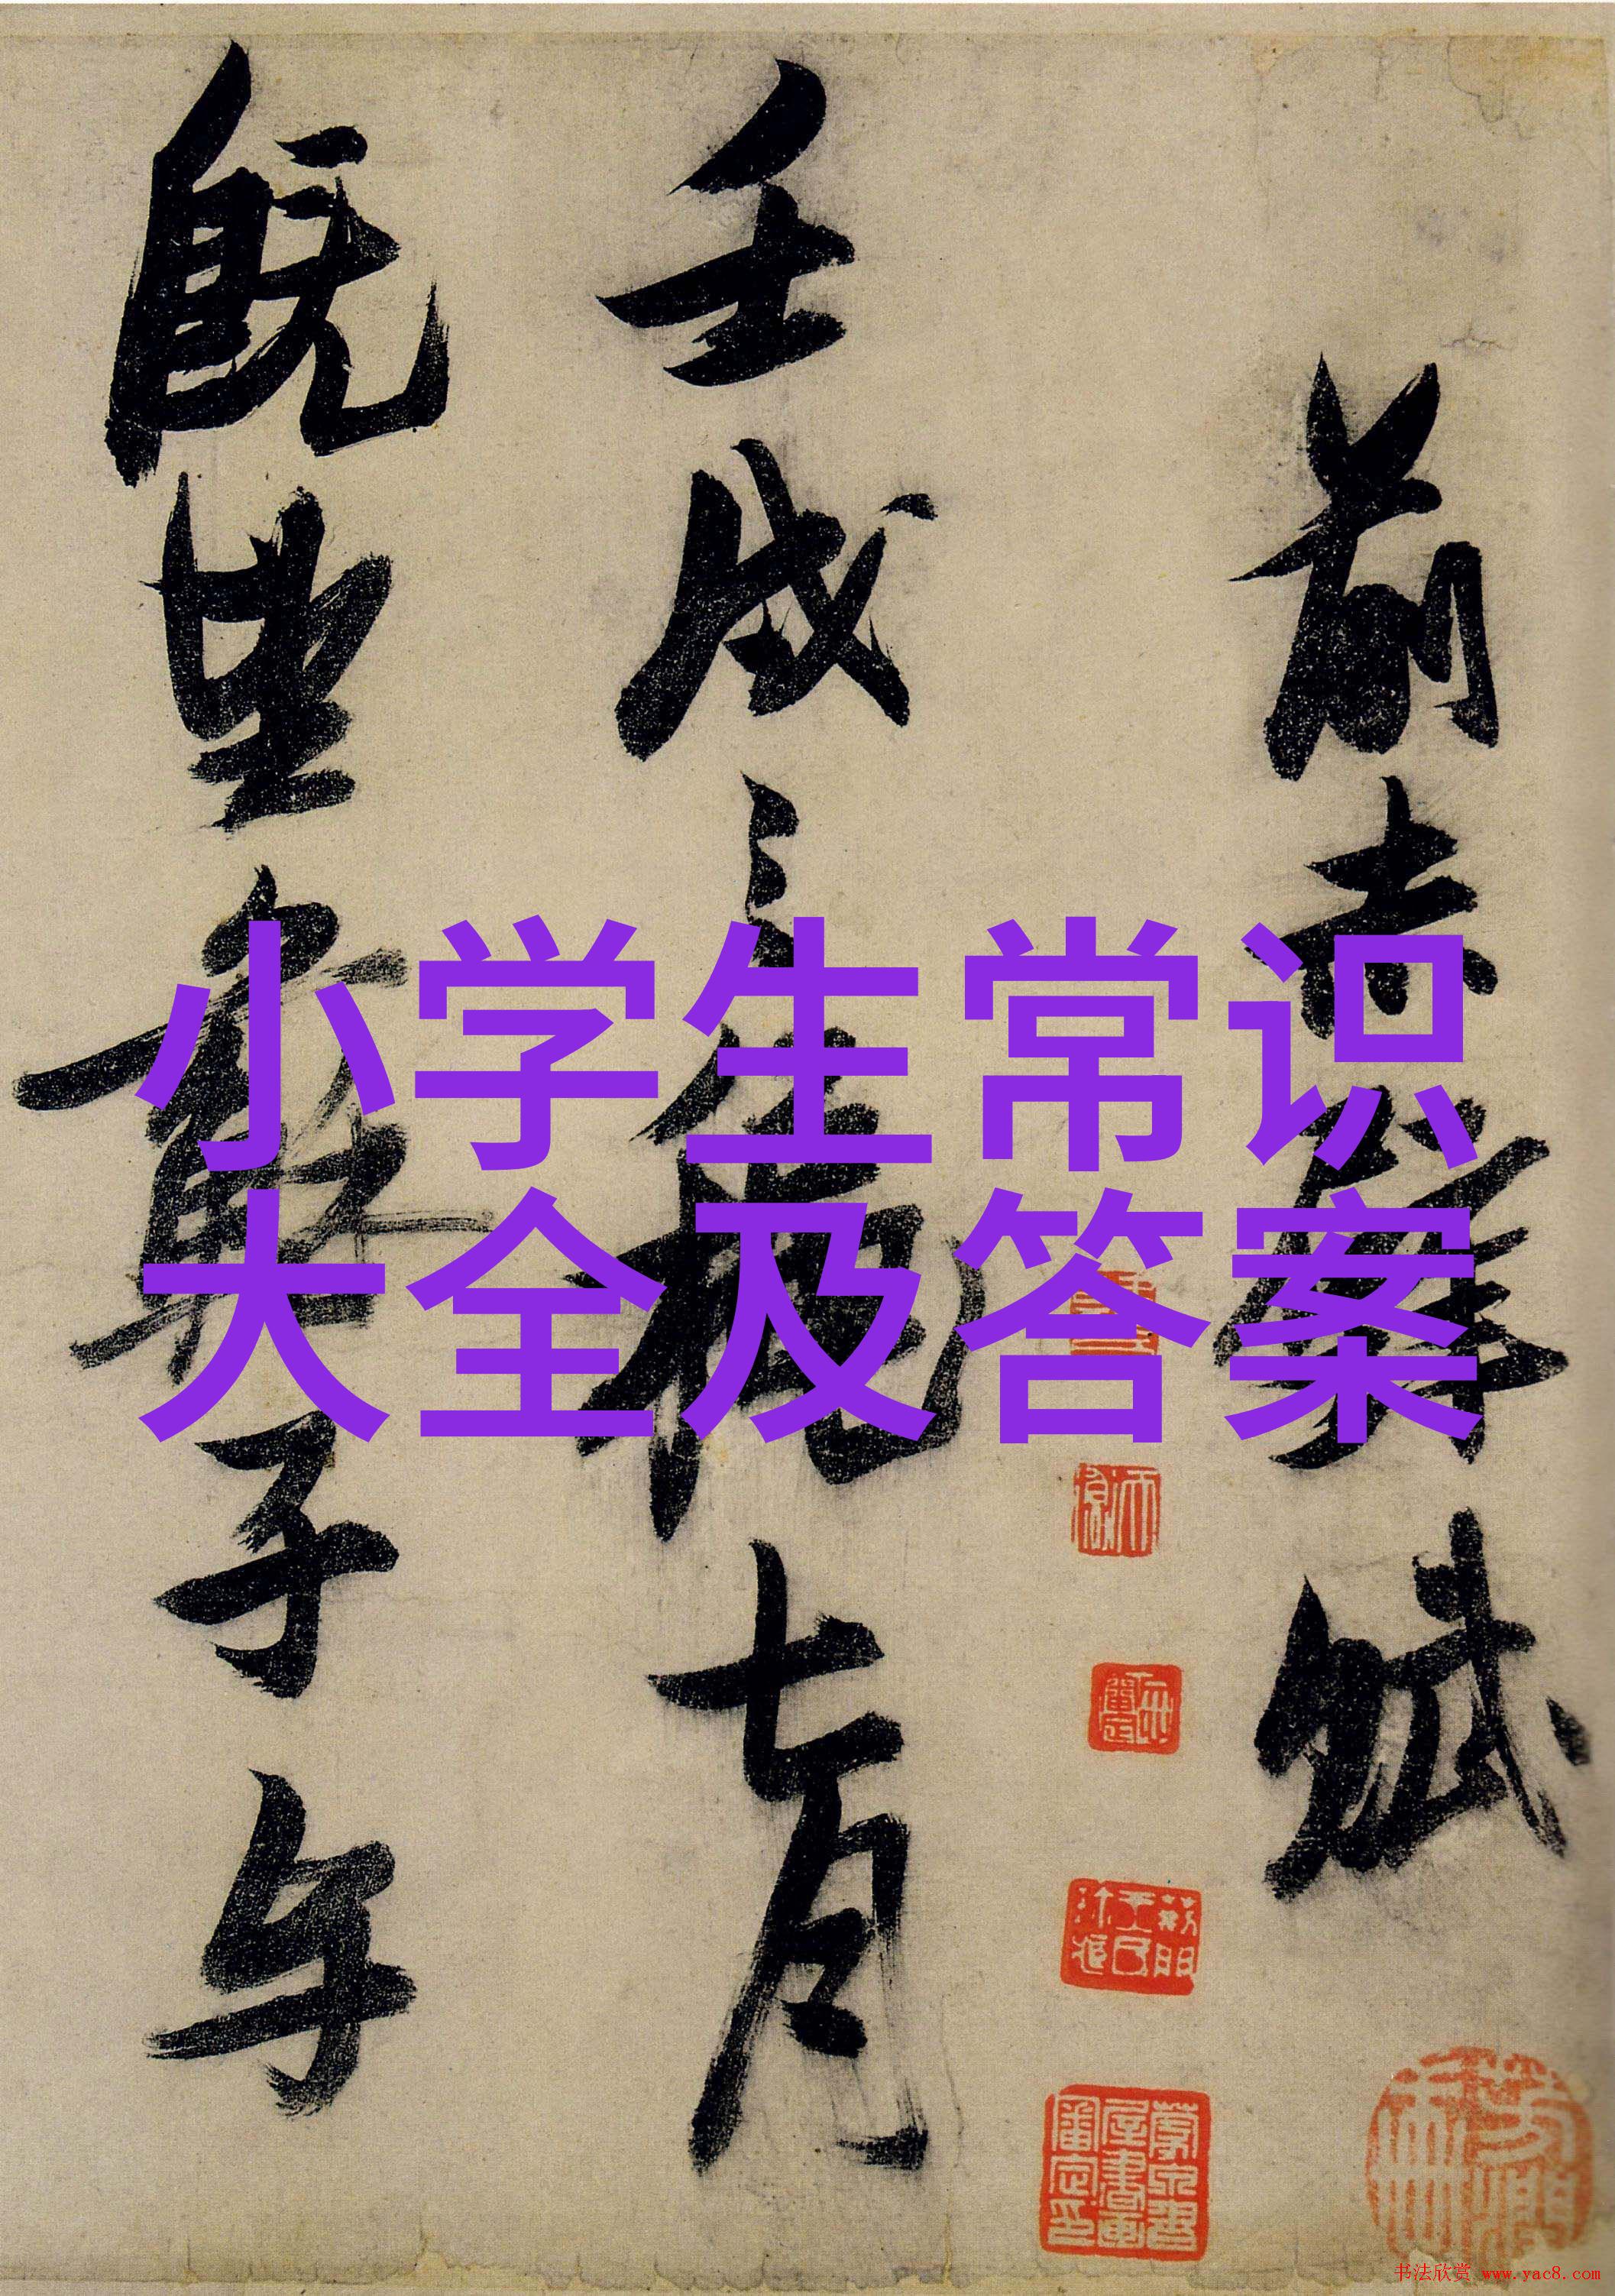 小学生常识
大全及答案
前赤壁賦
壬戌之秋七月
既望蘇子与
书法欣赏 www.yac8.com